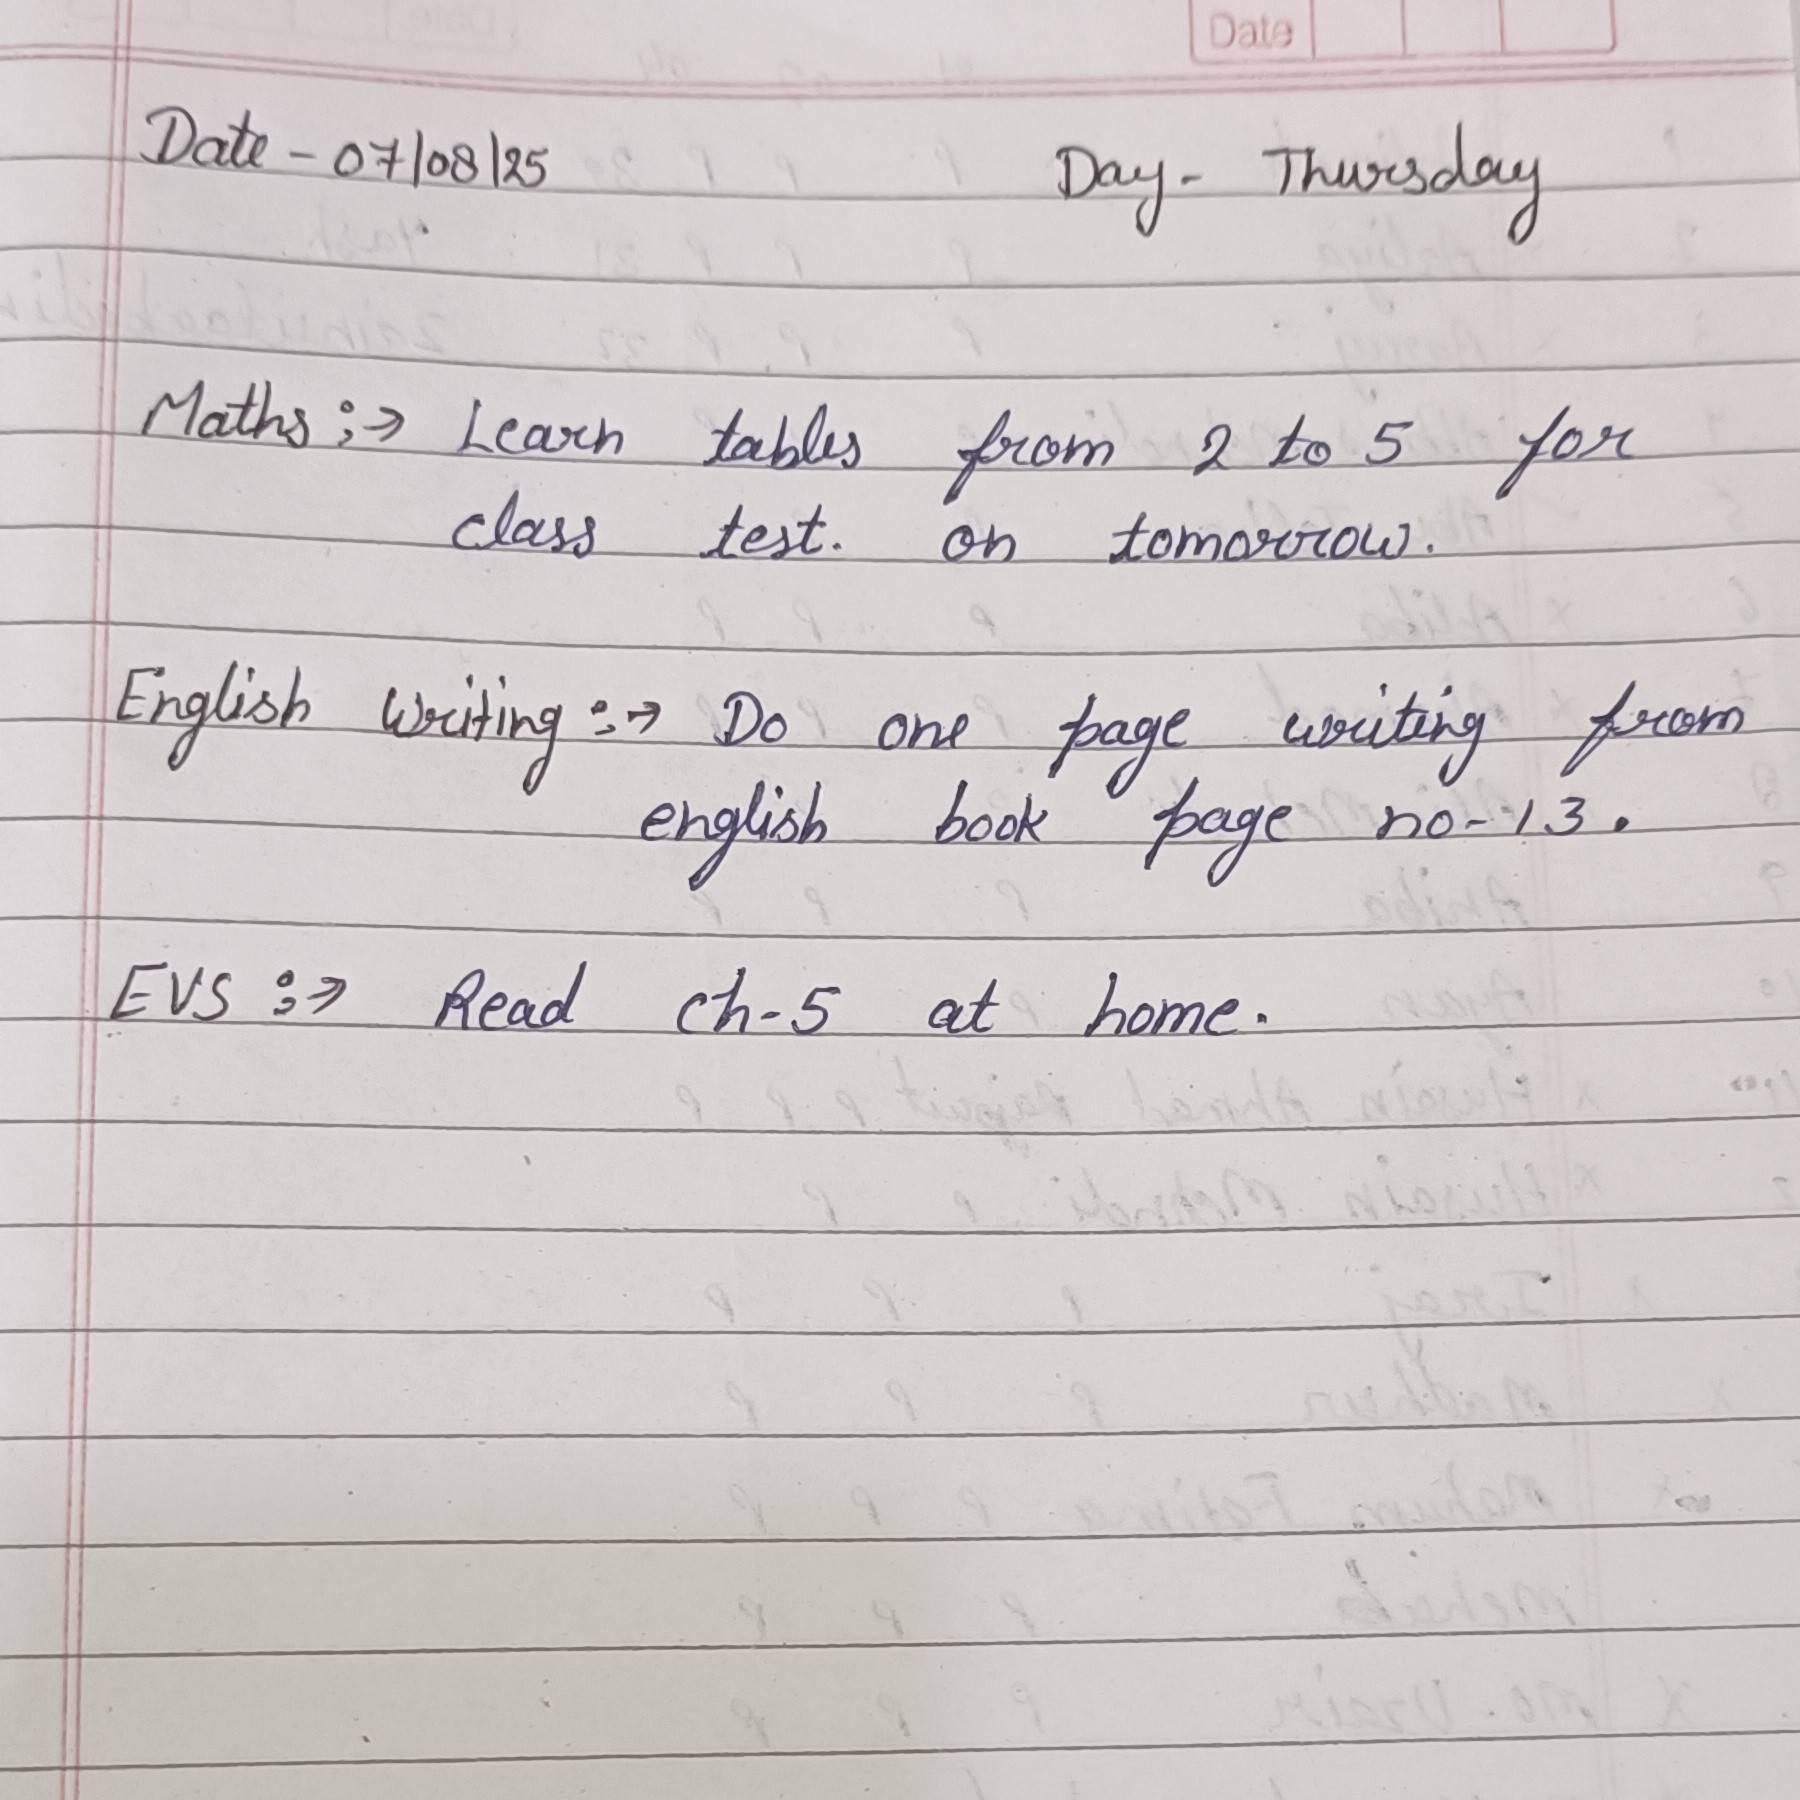 Date
Date - 07/08/25 Day - Thursday
Maths :→ Learn tables from 2 to 5 for
class test. on tomorrow.
English Writing :→ Do one page writing from
english book page no - 13.
EVS :→ Read ch-5 at home.